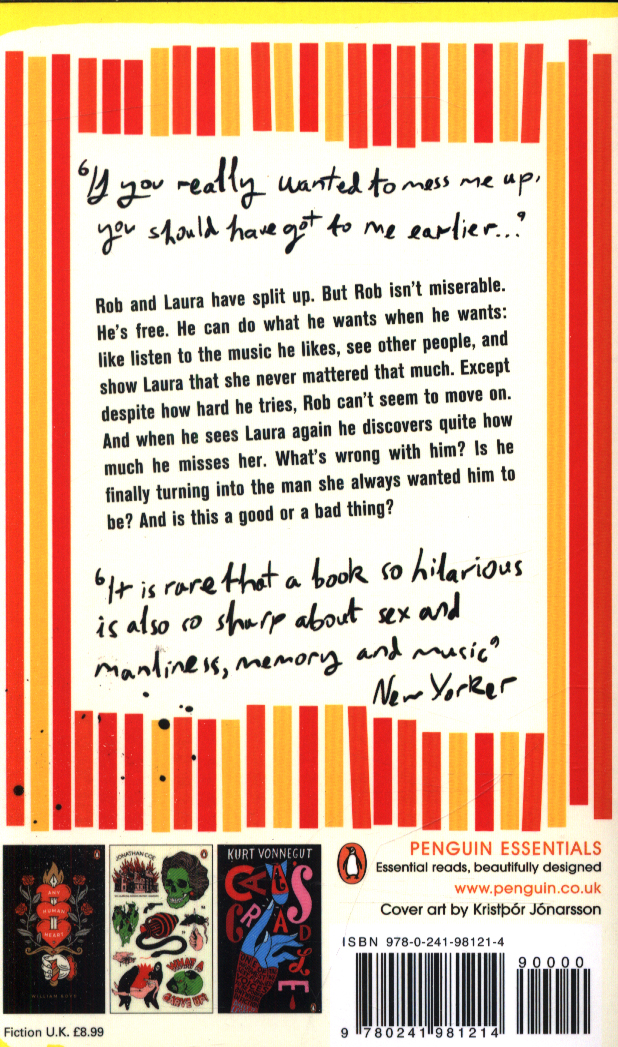 ‘If you really wanted to mess me up,
you should have got to me earlier...’
Rob and Laura have split up. But Rob isn't miserable.
He's free. He can do what he wants when he wants:
like listen to the music he likes, see other people, and
show Laura that she never mattered that much. Except
despite how hard he tries, Rob can't seem to move on.
And when he sees Laura again he discovers quite how
much he misses her. What's wrong with him? Is he
finally turning into the man she always wanted him to
be? And is this a good or a bad thing?
‘It is rare that a book so hilarious
is also so sharp about sex and
manliness, memory and music’
New Yorker
ANY
HUMAN
HEART
WILLIAM BOYD
JONATHAN COE
WHAT A
CARVE UP!
KURT VONNEGUT
CAT'S
CRADLE
PENGUIN ESSENTIALS
Essential reads, beautifully designed
www.penguin.co.uk
Cover art by Kristþór Jónarsson
ISBN 978-0-241-98121-4
90000
9 780241 981214
Fiction U.K. £8.99